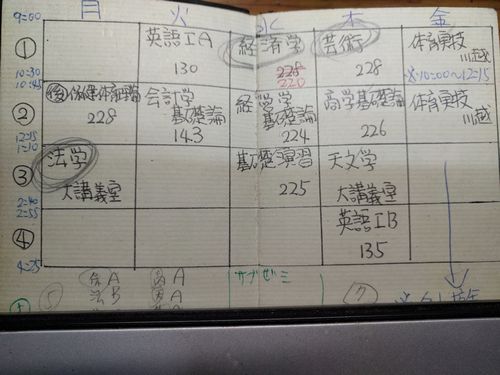 月 火 水 木 金
9:00
① 英語ⅠA 経済学 芸術 体育実技
130 228 228 川越
220 ※10:00~12:15
10:30
10:45
② 後 保健体育理論 会計学 経営学 商学基礎論 体育実技
228 基礎論 基礎論 226 川越
143 224
12:15
1:10
③ 法学 基礎演習 天文学
大講義室 225 大講義室
2:40
2:55
④ 英語ⅠB
135
4:25
⑤ A A サブゼミ ⑦
法B A